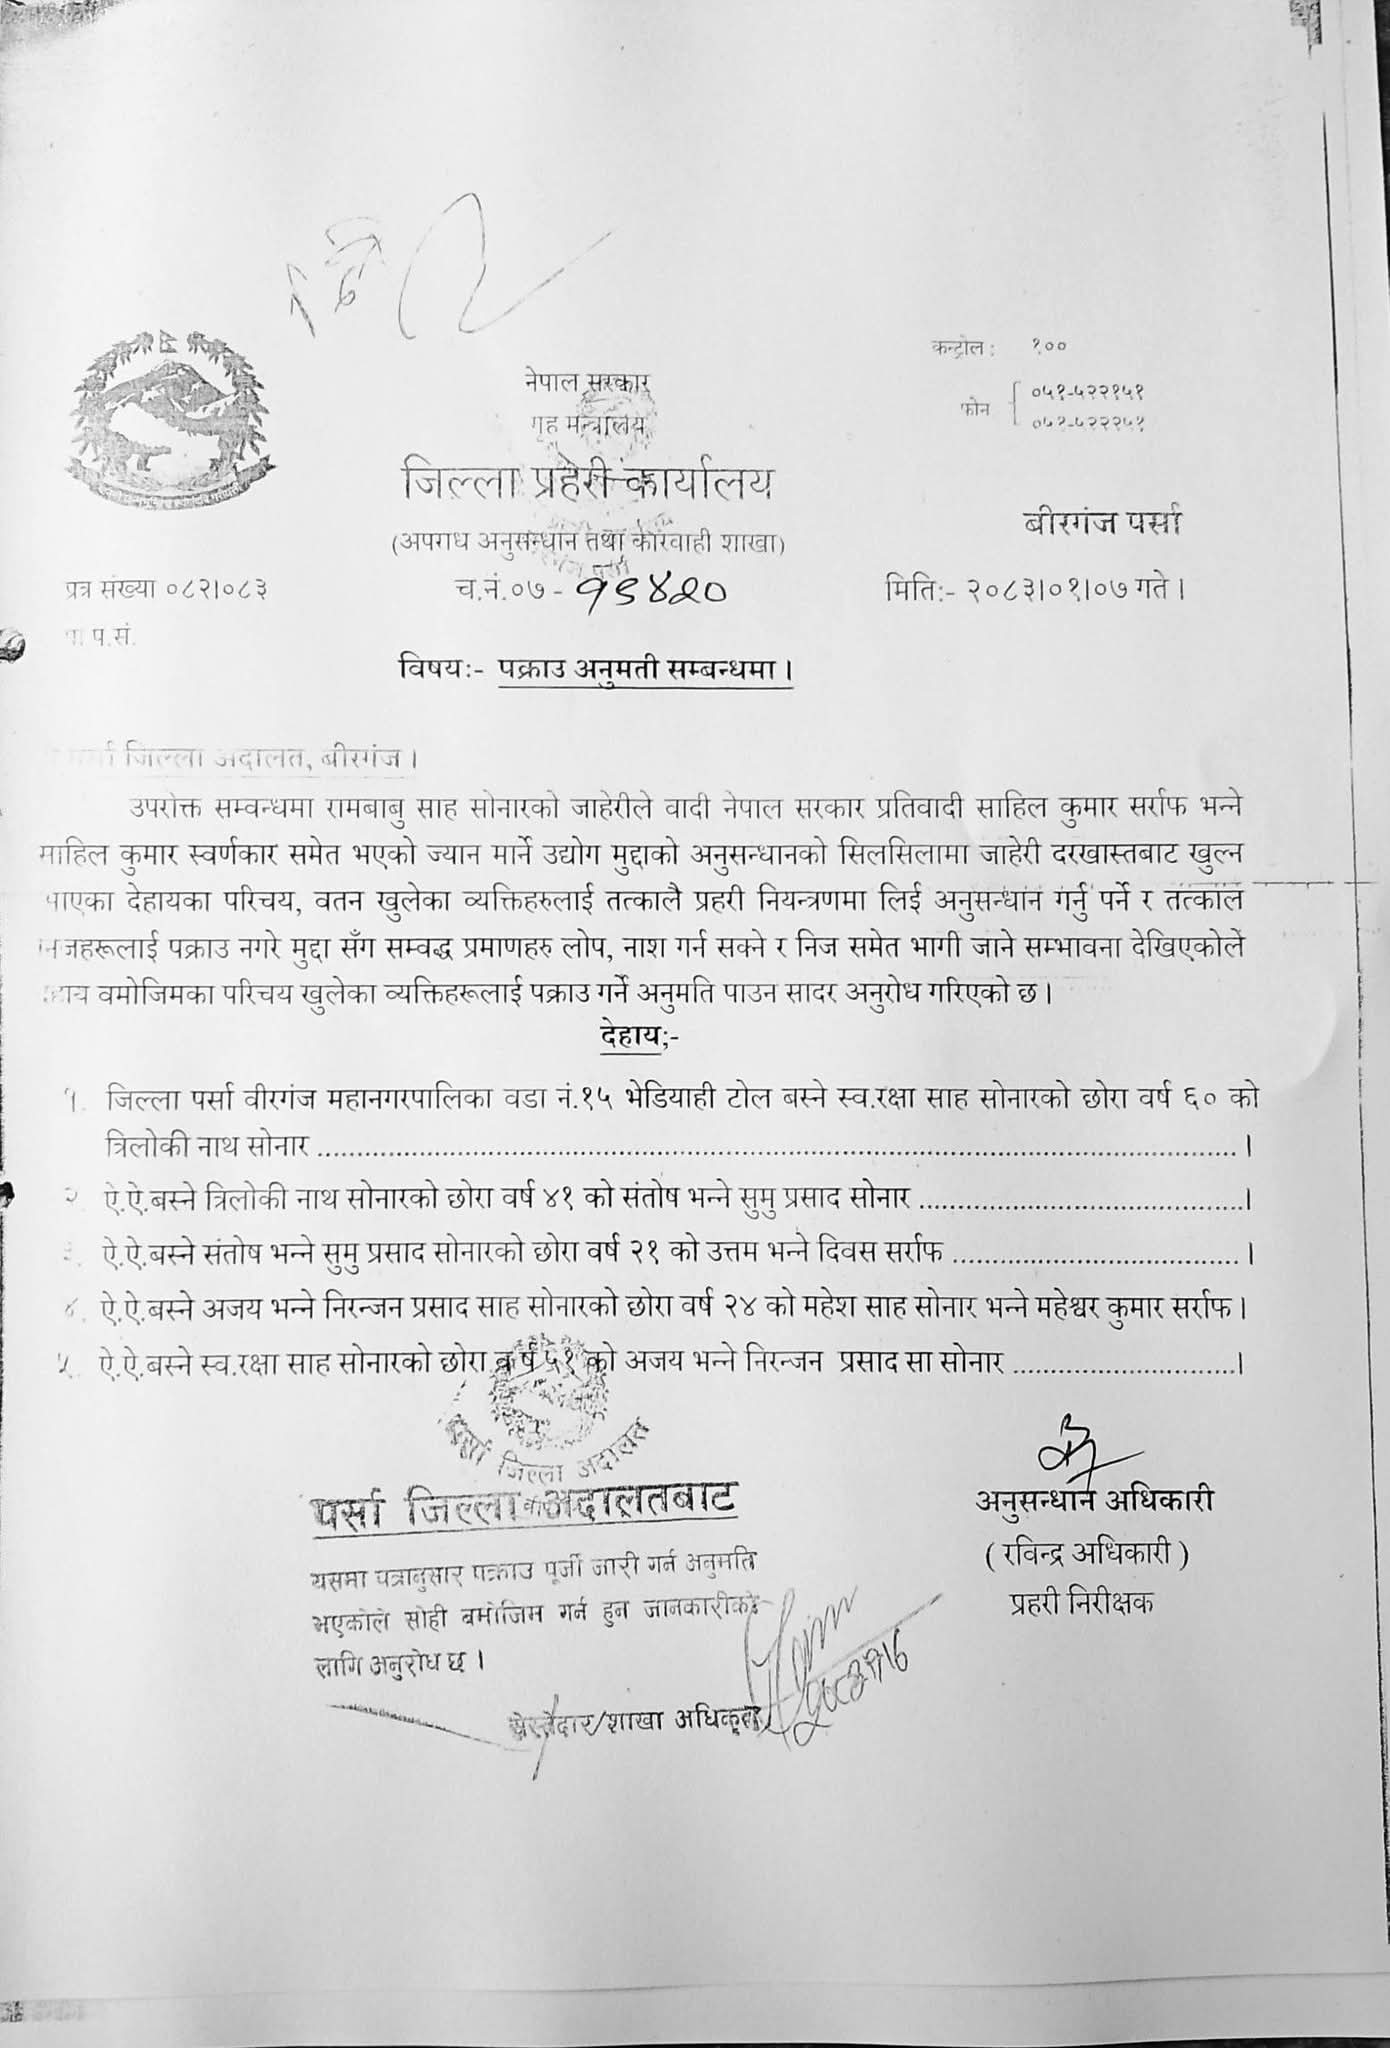 कन्ट्रोल: १००
नेपाल सरकार
फोन ०५१-५२२१५१
०५१-५२२२५१
गृह मन्त्रालय
जिल्ला प्रहरी कार्यालय
बीरगंज पर्सा
(अपराध अनुसन्धान तथा कारवाही शाखा)
पत्र संख्या ०८२।०८३
च.नं.०७ -
मिति:- २०८३।०१।०७ गते।
प.सं.
विषय:- पक्राउ अनुमती सम्बन्धमा।
जिल्ला अदालत, बीरगंज।
उपरोक्त सम्वन्धमा रामबाबु साह सोनारको जाहेरीले वादी नेपाल सरकार प्रतिवादी साहिल कुमार सर्राफ भन्ने
साहिल कुमार स्वर्णकार समेत भएको ज्यान मार्ने उद्योग मुद्दाको अनुसन्धानको सिलसिलामा जाहेरी दरखास्तबाट खुल्न
आएका देहायका परिचय, वतन खुलेका व्यक्तिहरुलाई तत्कालै प्रहरी नियन्त्रणमा लिई अनुसन्धान गर्नु पर्ने र तत्काल
निजहरूलाई पक्राउ नगरे मुद्दा सँग सम्वद्ध प्रमाणहरु लोप, नाश गर्न सक्ने र निज समेत भागी जाने सम्भावना देखिएकोले
देहाय वमोजिमका परिचय खुलेका व्यक्तिहरूलाई पक्राउ गर्ने अनुमति पाउन सादर अनुरोध गरिएको छ।
देहाय;-
१. जिल्ला पर्सा वीरगंज महानगरपालिका वडा नं.१५ भेडियाही टोल बस्ने स्व.रक्षा साह सोनारको छोरा वर्ष ६० को
त्रिलोकी नाथ सोनार ..........।
२. ऐ.ऐ.बस्ने त्रिलोकी नाथ सोनारको छोरा वर्ष ४१ को संतोष भन्ने सुमु प्रसाद सोनार ..........।
३. ऐ.ऐ.बस्ने संतोष भन्ने सुमु प्रसाद सोनारको छोरा वर्ष २१ को उत्तम भन्ने दिवस सर्राफ ..........।
४. ऐ.ऐ.बस्ने अजय भन्ने निरन्जन प्रसाद साह सोनारको छोरा वर्ष २४ को महेश साह सोनार भन्ने महेश्वर कुमार सर्राफ।
५. ऐ.ऐ.बस्ने स्व.रक्षा साह सोनारको छोरा वर्ष ५१ को अजय भन्ने निरन्जन प्रसाद सा सोनार ..........।
पर्सा जिल्ला अदालत
पर्सा जिल्ला अदालतबाट
अनुसन्धान अधिकारी
यसमा पत्रानुसार पक्राउ पूर्जी जारी गर्न अनुमति
(रविन्द्र अधिकारी)
भएकोले सोही बमोजिम गर्न हुन जानकारीको
प्रहरी निरीक्षक
लागि अनुरोध छ।
स्रेस्तेदार/शाखा अधिकृत